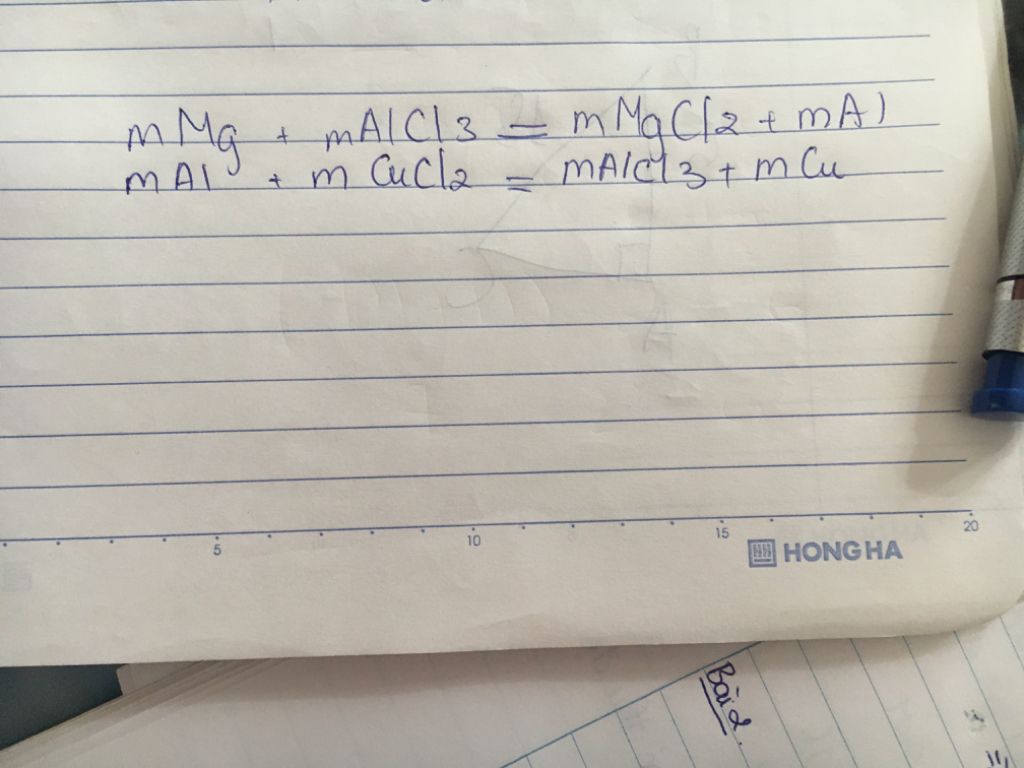 mMg + mAlCl3 = mMgCl2 + mAl
mAl + mCuCl2 = mAlCl3 + mCu
5 10 15 20
HONG HA
Bài 2.